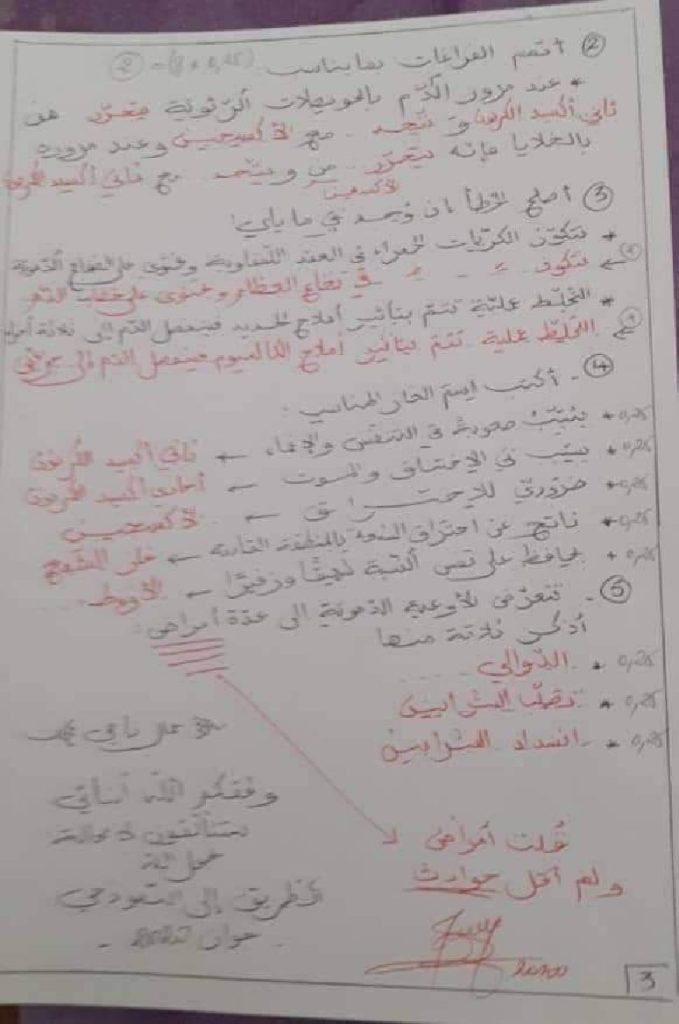 ② أتمم الفراغات بما يناسب (8 × 0,25) = 2
* عند مرور الدّم بالحويصلات الرّئويّة يتحرّر من
ثاني أكسيد الكربون و يتّحد مع الأكسجين وعند مروره
بالخلايا فإنّه يتحرّر من و يتّحد مع ثاني أكسيد الكربون
الأكسجين
③ أصلح الخطأ إن وُجد في ما يلي:
* تتكوّن الكريّات الحمراء في العقد اللّمفاويّة وتحتوي على الدّمويّة
← تتكوّن = = = في نخاع العظام و تحتوي على خضاب الدّم
* التجلّط عمليّة تتمّ بتأثير أملاح الحديد فينفصل الدّم إلى ثلاثة أجزاء
← التجلّط عملية تتمّ بتأثير أملاح الكالسيوم فينفصل الدّم إلى جزئين
④ - أكتب اسم الغاز المناسب:
0,25 * يسبّب صعوبة في التنفّس والإغماء ← ثاني أكسيد الكربون
0,25 * يسبّب في الاختناق والموت ← أحادي أكسيد الكربون
0,25 * ضروريّ للاحتراق ← الأكسجين
0,25 * ناتج عن احتراق الشمعة بالمنطقة القاتمة ←
0,25 * يحافظ على نفس النّسبة شهيقًا وزفيرًا ← الأزوط
⑤ - تتعرّض الأوعية الدّمويّة إلى عدّة أمراض.
أذكر ثلاثة منها
0,25 * الدّوالي
0,25 * تصلّب الشرايين
0,25 * انسداد الشرايين
وفقكم اللّه أبنائي
قُلت أمراض
ولم أقل حوادث
الطريق إلى النّموذجي
جوان
3